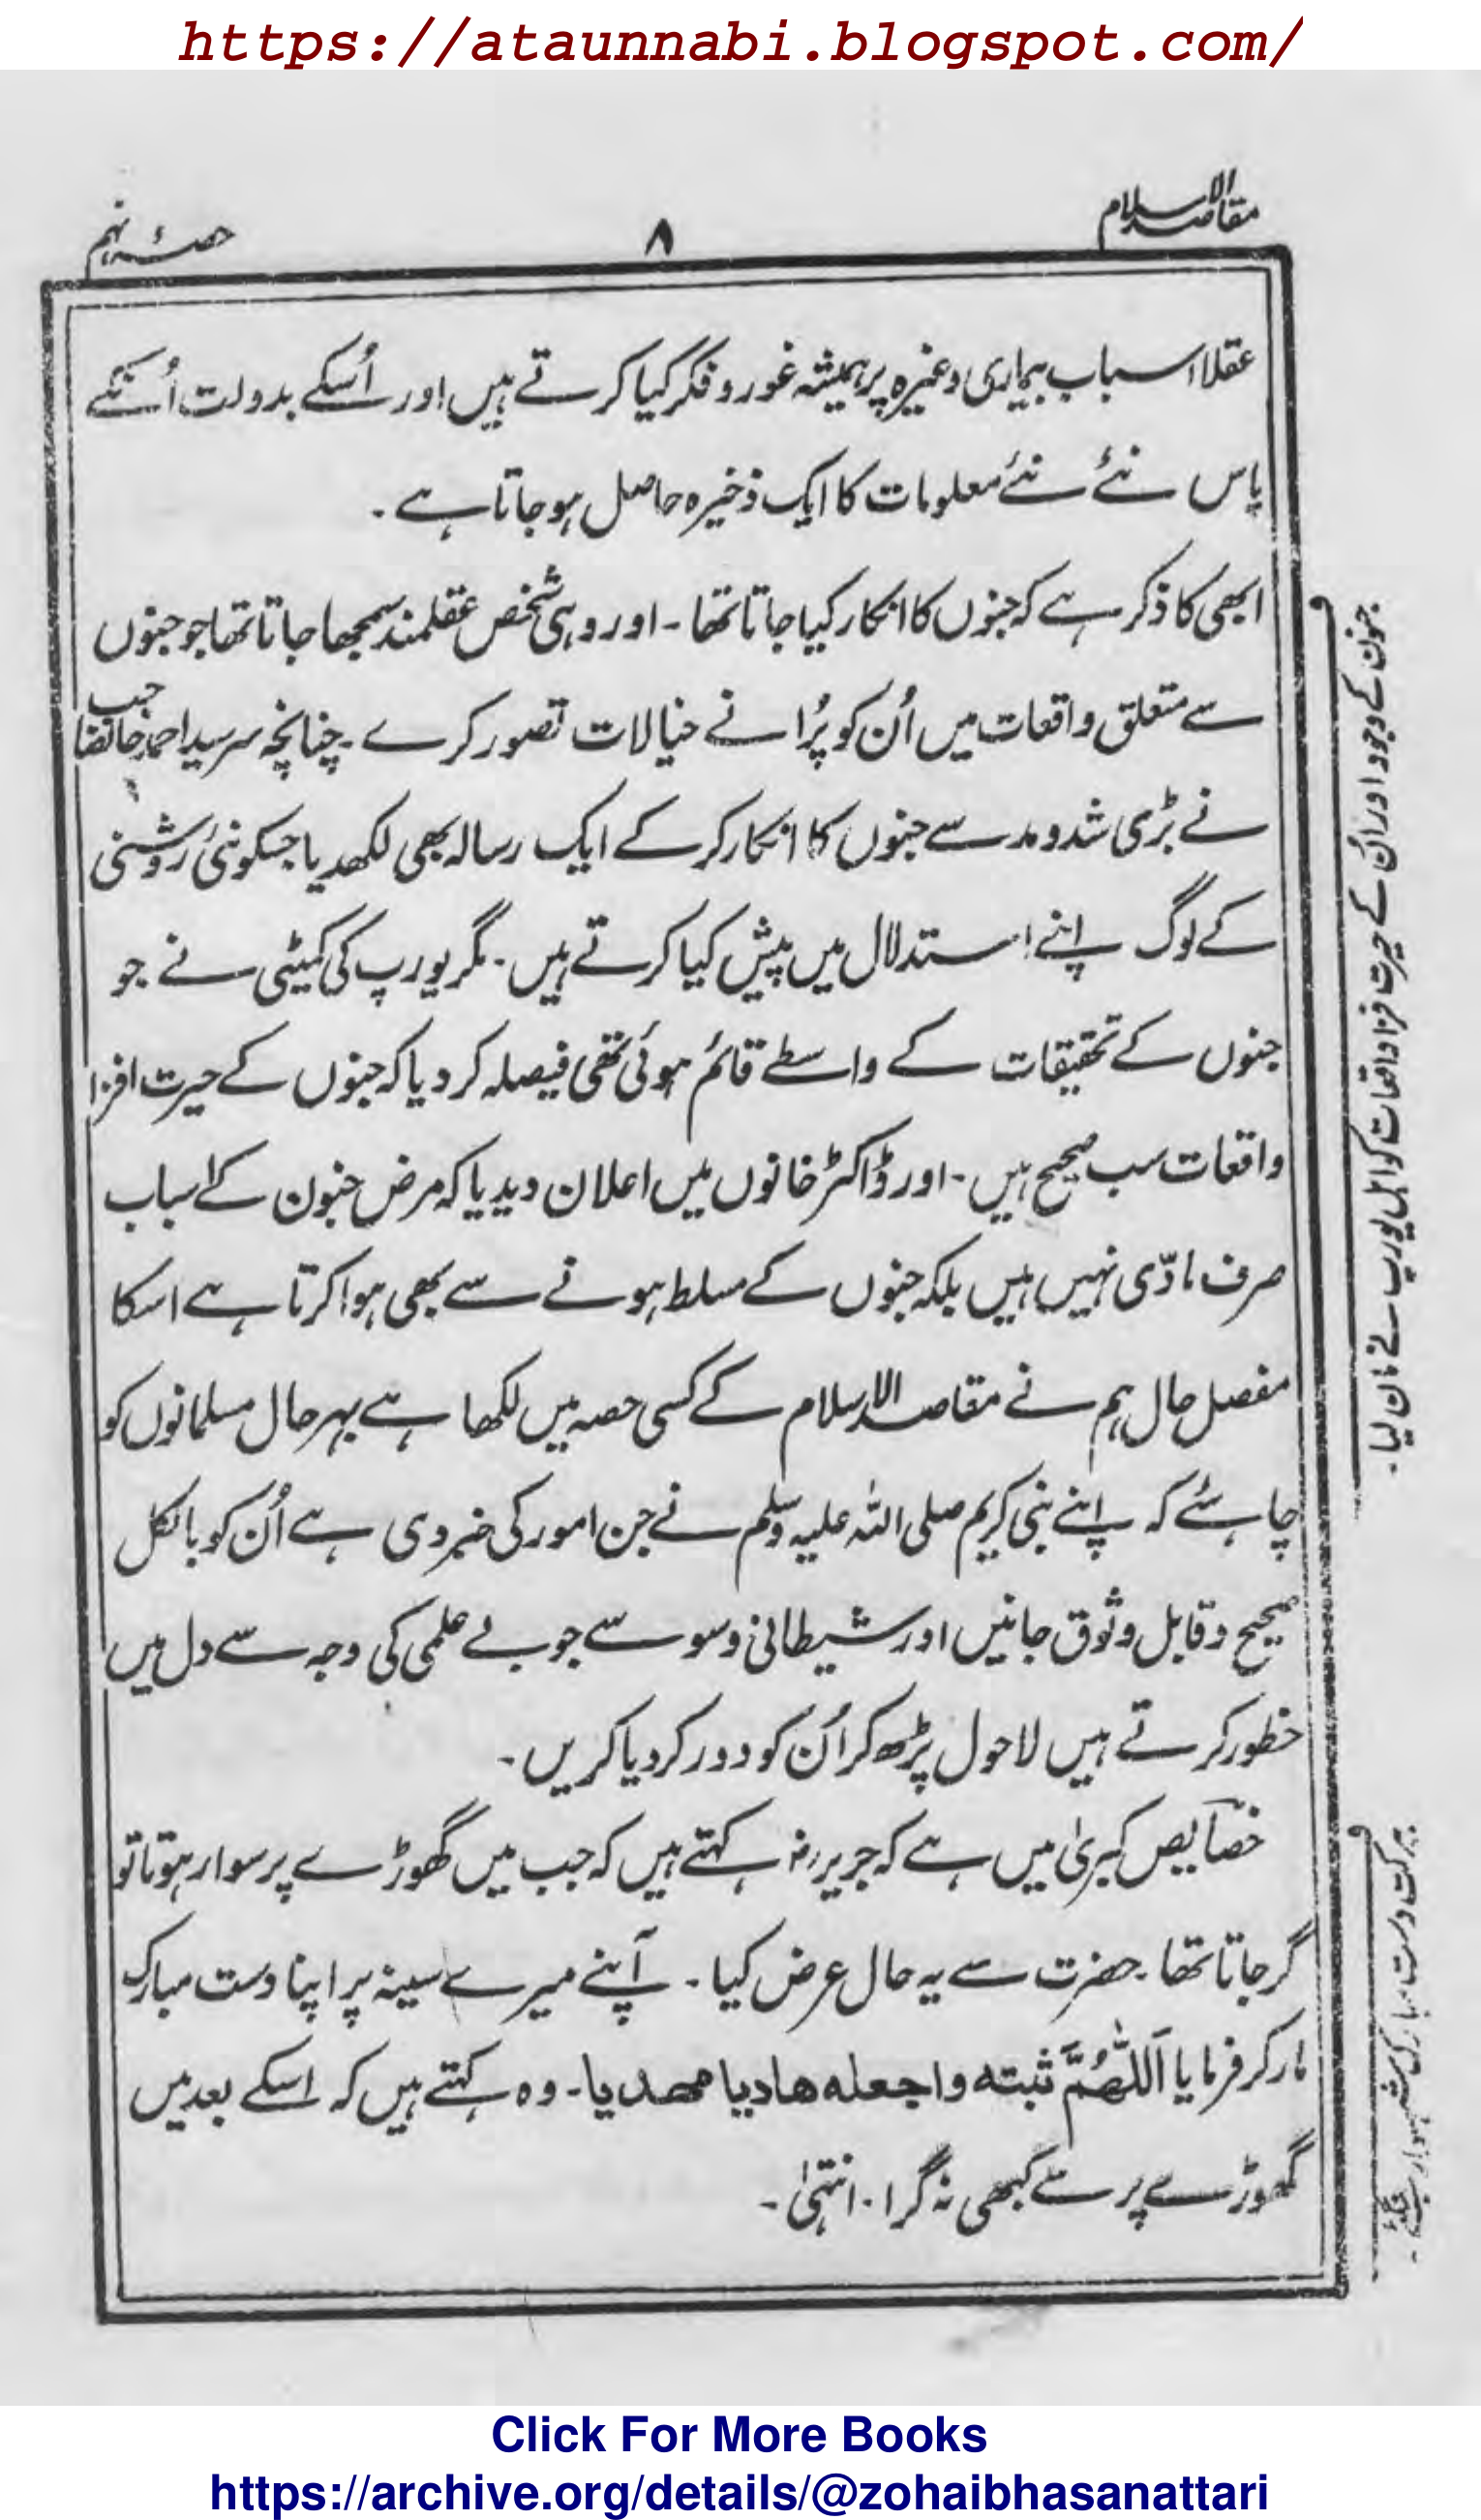 https://ataunnabi.blogspot.com/
مقاصد الاسلام
۸
حصۂ نہم
عقلا اسباب بیماری وغیرہ پر ہمیشہ غور و فکر کیا کرتے ہیں اور اُسکے بدولت اُنکے
پاس نئے نئے معلومات کا ایک ذخیرہ حاصل ہو جاتا ہے ۔
ابھی کا ذکر ہے کہ جنوں کا انکار کیا جاتا تھا ۔ اور وہی شخص عقلمند سمجھا جاتا تھا جو جنوں
سے متعلق واقعات میں اُن کو پُرانے خیالات تصور کرے ۔ چنانچہ سرسید احمد خانصاحب
نے بڑی شد و مد سے جنوں کا انکار کرکے ایک رسالہ بھی لکھدیا جسکو نئی روشنی
کے لوگ اپنے استدلال میں پیش کیا کرتے ہیں ۔ مگر یورپ کی کمیٹی نے جو
جنوں کے تحقیقات کے واسطے قائم ہوئی تھی فیصلہ کر دیا کہ جنوں کے حیرت افزا
واقعات سب صحیح ہیں ۔ اور ڈاکٹر خانوں میں اعلان دیدیا کہ مرض جنون کے اسباب
صرف مادّی نہیں ہیں بلکہ جنوں کے مسلط ہونے سے بھی ہوا کرتا ہے اسکا
مفصل حال ہم نے مقاصد الاسلام کے کسی حصہ میں لکھا ہے بہرحال مسلمانوں کو
چاہئے کہ اپنے نبی کریم صلی اللہ علیہ وسلم نے جن امور کی خبر دی ہے اُن کو بالکل
صحیح و قابل وثوق جانیں اور شیطانی وسوسے جو بے علمی کی وجہ سے دل میں
خطور کرتے ہیں لاحول پڑھ کر اُن کو دور کر دیا کریں ۔
خصایص کبریٰ میں ہے کہ جریر رضہ کہتے ہیں کہ جب میں گھوڑے پر سوار ہوتا تو
گر جاتا تھا ۔ حضرت سے یہ حال عرض کیا ۔ آپنے میرے سینہ پر اپنا دست مبارک
مار کر فرمایا اَللّٰھُمَّ ثبته واجعله ھادیا مھدیا ۔ وہ کہتے ہیں کہ اسکے بعد میں
گھوڑے پر سے کبھی نہ گرا ۔ انتہیٰ ۔
جنون کے وجود اور اُن کے حیرت فزا واقعات کو اہل یورپ نے مان لیا ۔
برکت دست مبارک
Click For More Books
https://archive.org/details/@zohaibhasanattari